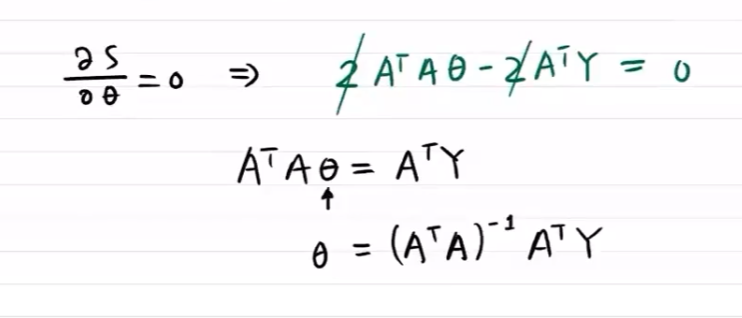 ∂S/∂θ = 0 ⇒ 2AᵀAθ - 2AᵀY = 0
AᵀAθ = AᵀY
↑
θ = (AᵀA)⁻¹AᵀY